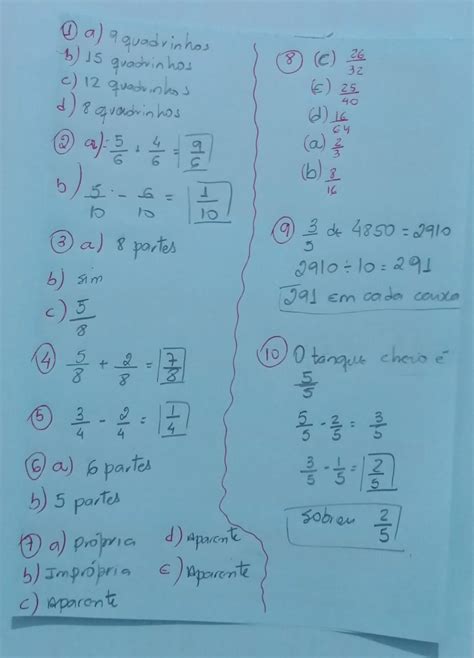 ① a) 9 quadrinhos
b) 15 quadrinhos
c) 12 quadrinhos
d) 8 quadrinhos
② a) 5/6 + 4/6 = 9/6
b) 5/10 - 6/10 = 1/10
③ a) 8 partes
b) sim
c) 5/8
④ 5/8 + 2/8 = 7/8
⑤ 3/4 - 2/4 = 1/4
⑥ a) 6 partes
b) 5 partes
⑦ a) Própria
b) Imprópria
c) Aparente
d) Aparente
e) Aparente
⑧ (c) 26/32
(e) 25/40
(d) 16/64
(a) 2/3
(b) 8/16
⑨ 3/5 de 4850 = 2910
2910 ÷ 10 = 291
291 em cada caixa
⑩ O tanque cheio é
5/5
5/5 - 2/5 = 3/5
3/5 - 1/5 = 2/5
Sobrou 2/5